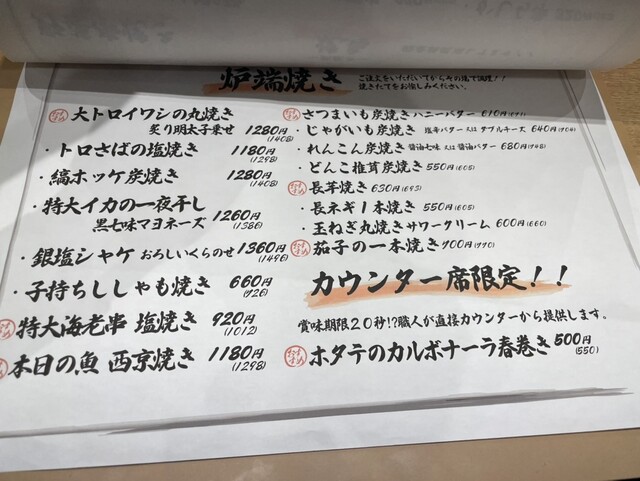 炉端焼き
ご注文をいただいてからその場で調理!!
焼きたてをお愉しみください。
大トロイワシの丸焼き
炙り明太子乗せ 1280円
(1408)
・トロさばの塩焼き 1180円
(1298)
・縞ホッケ炭焼き 1280円
(1408)
・特大イカの一夜干し
黒七味マヨネーズ 1260円
(1386)
・銀塩シャケ おろしいくらのせ 1360円
(1496)
・子持ちししゃも焼き 660円
(726)
特大海老串 塩焼き 920円
(1012)
本日の魚 西京焼き 1180円
(1298)
さつまいも炭焼き ハニーバター 610円(671)
・じゃがいも炭焼き 塩辛バター 又は ダブルチーズ 640円(704)
・れんこん炭焼き 醤油七味 又は 醤油バター 680円(748)
・どんこ椎茸炭焼き 550円(605)
長芋焼き 630円(693)
・長ネギ1本焼き 550円(605)
・玉ねぎ丸焼き サワークリーム 600円(660)
茄子の一本焼き 700円(770)
カウンター席限定!!
賞味期限20秒!?職人が直接カウンターから提供します。
ホタテのカルボナーラ春巻き 500円
(550)